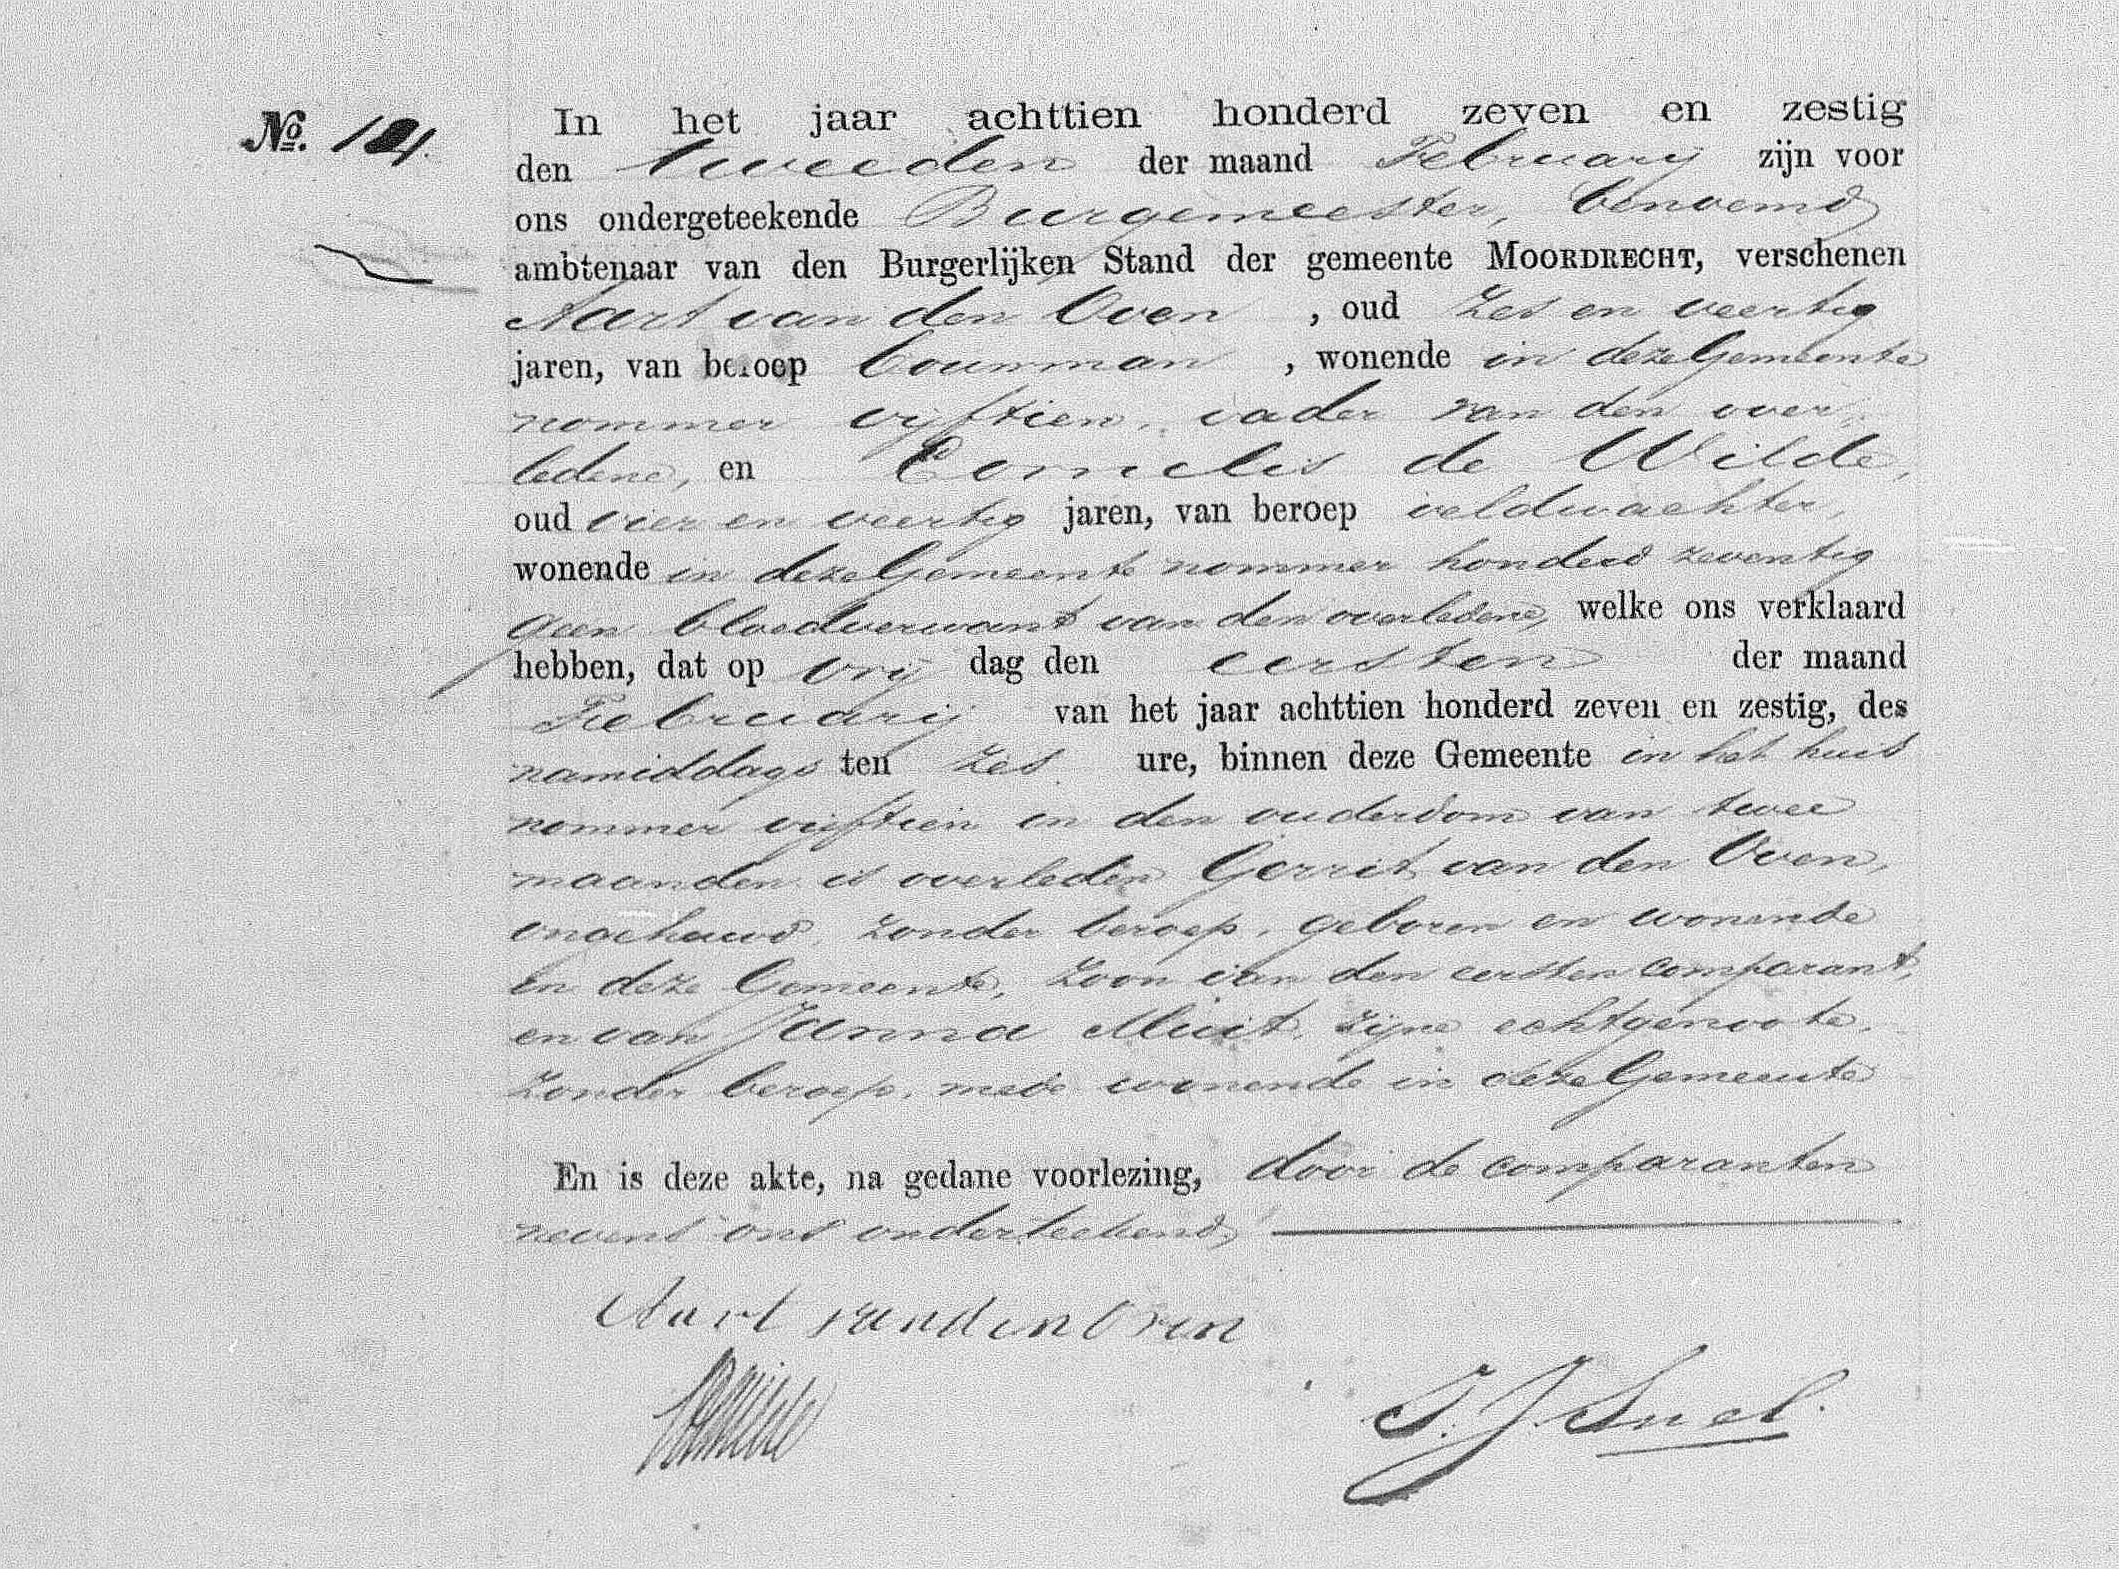 No. 14.
In het jaar achttien honderd zeven en zestig
den tweeden der maand February zijn voor
ons ondergeteekende Burgemeester, benoemd
ambtenaar van den Burgerlijken Stand der gemeente MOORDRECHT, verschenen
Aart van den Oven, oud zes en veertig
jaren, van beroep bouwman, wonende in deze Gemeente
nommer vijftien, vader van den over
ledene, en Cornelis de Wilde,
oud vier en veertig jaren, van beroep veldwachter,
wonende in deze Gemeente nommer honderd zeventig
geen bloedverwant van den overledene, welke ons verklaard
hebben, dat op vrij dag den eersten der maand
Februarij van het jaar achttien honderd zeven en zestig, des
namiddags ten zes ure, binnen deze Gemeente in het huis
nommer vijftien in den ouderdom van twee
maanden is overleden Gerrit van den Oven,
ongehuwd, zonder beroep, geboren en wonende
in deze Gemeente, zoon van den eersten comparant,
en van Janna Muit, zijne echtgenoote,
zonder beroep, mede wonende in deze Gemeente
En is deze akte, na gedane voorlezing, door de comparanten
nevens ons onderteekend,
Aart van den Oven
CdWilde
T. J. Snel.